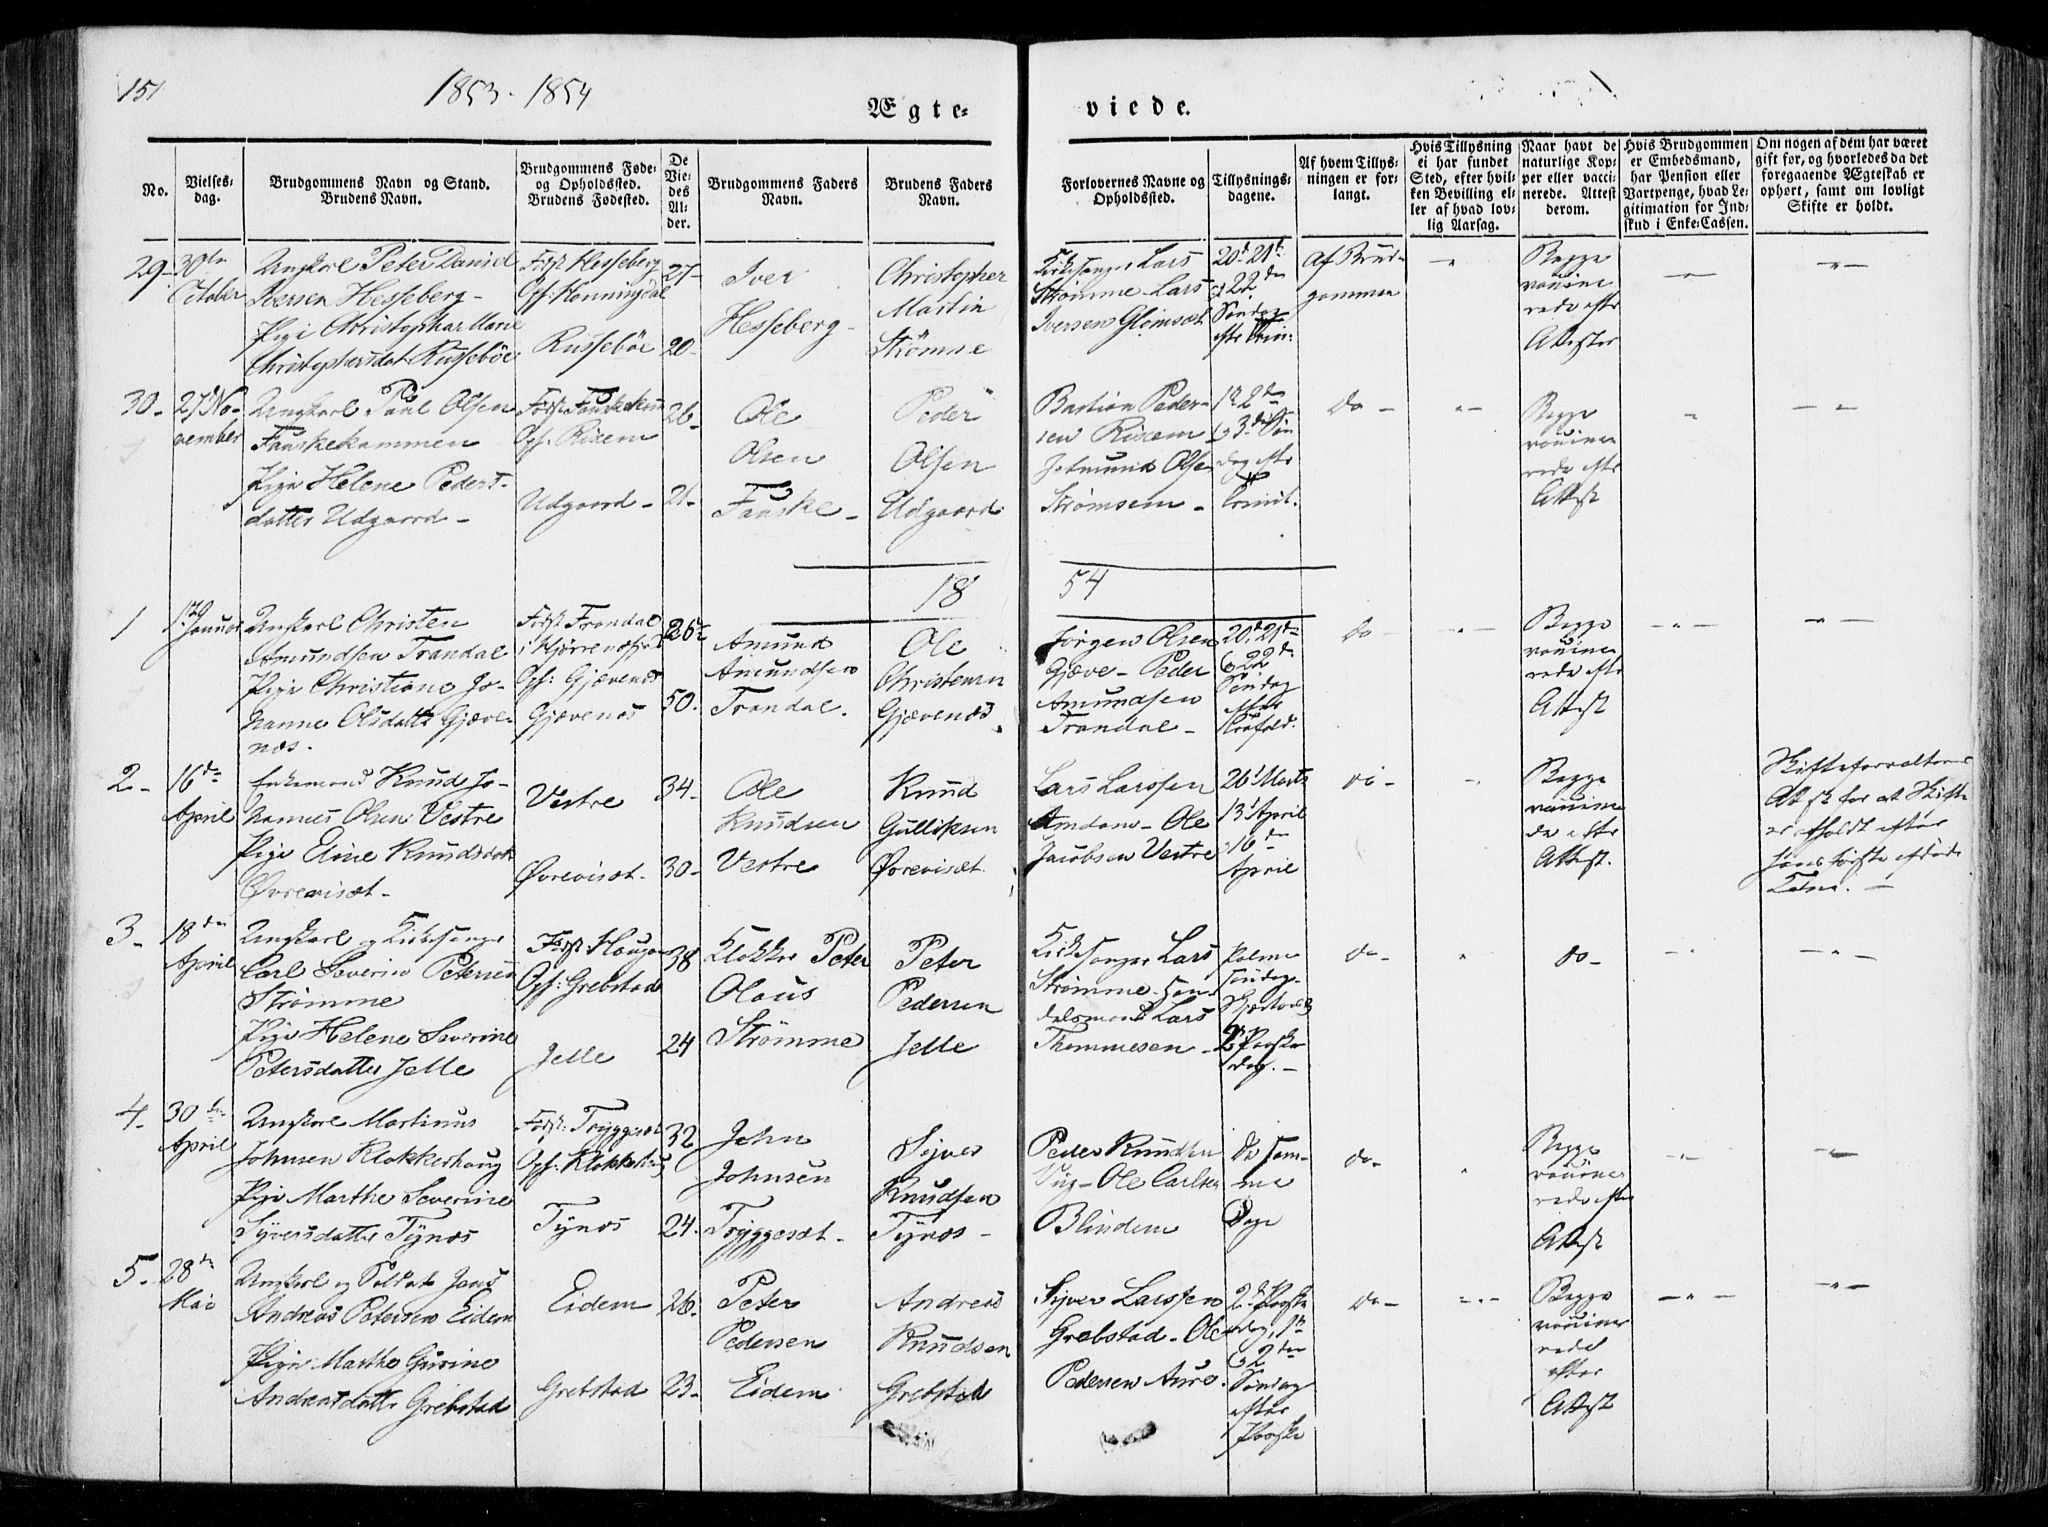 151
1853 - 1854
Ægte-
viede.
No.
Vielses-
dag.
Brudgommens Navn og Stand.
Brudens Navn.
Brudgommens Føde-
og Opholdssted.
Brudens Fødested.
De
Vie-
des
Al-
der.
Brudgommens Faders
Navn.
Brudens Faders
Navn.
Forlovernes Navne og
Opholdssted.
Tillysnings-
dagene.
Af hvem Tillys-
ningen er for-
langt.
Hvis Tillysning
ei har fundet
Sted, efter hvil-
ken Bevilling el-
ler af hvad lov-
lig Aarsag.
Naar havt de
naturlige Kop-
per eller vacci-
nerede. Attest
derom.
Hvis Brudgommen
er Embedsmand,
har Pension eller
Vartpenge, hvad Le-
gitimation for Ind-
skud i Enke-Cassen.
Om nogen af dem har været
gift før, og hvorledes da det
foregaaende Ægteskab er
ophørt, samt om lovligt
Skifte er holdt.
29-
30te
October
Ungkarl Peter Daniel
Iversen Hesseberg-
Pige Christophar Marie
Christophersdat Russebøe
Født Hesseberg
Oph: Honningdal
Russebøe
27-
20-
Iver
Hesseberg-
Christopher
Martin
Strømme
Kirkesanger Lars
Strømme - Lars
Iversen Glomset
20d 21d
og 22de
Søndag
efter Trini:
Af Brud-
gommen
Begge
vaccine-
rede efter
Attester
30-
27 No-
vember
Ungkarl Paul Olsen
Fauskekammen
Pige Helene Peders-
datter Udgaard-
Oph: Rixem
Udgaard-
26-
21-
Ole
Olsen
Fauske-
Peder
Olsen
Udgaard
Bastian Peder-
sen Rixem
Olsen
Strømsem-
1ste 2den
og 3die Søn
dag efter
do -
Begge
vaccine-
rede efter
Attest
18
54
1
Januar
Ungkarl Christen
Amundsen Trandal
Pige Christiane Jo-
hanne Olsdatter Gjæve-
næs.
Født Trandal
i Hjørrendfjord
Oph: Gjævenæs
Gjævenæs
26-
50-
Amund
Amundsen
Trandal.
Ole
Christensen
Gjævenæs
Jørgen Olsen
Gjæve - Peder
Amundsen
Trandal-
20d 21de
og 22de
Søndag
efter
do
Begge
vaccine-
rede efter
Attest
2-
16de
April
Enkemand Knud Jo-
hannes Olsen Vestre
Pige Eline Knudsdatt
Øvrevisæt-
Vestre
Øvrevisæt-
34-
30-
Ole
Knudsen
Vestre
Knud
Gulliksen
Øvrevisæt
Lars Larssen
Amdam - Ole
Jacobsen Vestre
26' Marts
13' April
16de
April
do -
Begge
vaccinere-
de efter
Attest.
Skifteforvalterens
Attest for at Skifte
er afholdt efter
hans første afdøde
Kone. -
3-
18de
April
Ungkarl og Kirkesanger
Carl Severin Petersen
Strømme
Pige Helene Severine
Petersdatter Jelle
Født: Haugen
Oph: Grebstad
Jelle
38
24
Klokker Peter
Olaus
Strømme
Peter
Pedersen
Jelle
Kirkesanger Lars
Strømme - Lens-
mand Lars
Thommesen-
Palme
Søndag-
Skjærtorsdag
2' Paaske
dag.-
do-
do-
4-
30te
April
Ungkarl Martinus
Johnsen Klokkerhaug
Pige Marthe Severine
Syversdatter Tynæs
Født: Tryggesæt
Oph: Klokkerhaug
Tynæs
32
24.
John
Johnsen
Tryggesæt-
Syver
Knudsen
Tynæs-
Peder Knudsen
Viig - Ole Carlsen
Blindem
De sam-
me
Dage
do-
Begge
vaccine-
rede efter
Attest
5-
28de
Mai
Ungkarl og Soldat Jens
Andreas Petersen Eidem
Pige Marthe Gurine
Andreasdatter Grebstad
Eidem
Grebstad
26-
23-
Peter
Pedersen
Eidem
Andreas
Knudsen
Grebstad
Syver Larssen
Grebstad - Ole
Pedersen Aure.
2de Paaske
dag, 1ste
og 2den
Søndag
efter
Paaske
do-
Begge
vaccine-
rede
efter
Attest